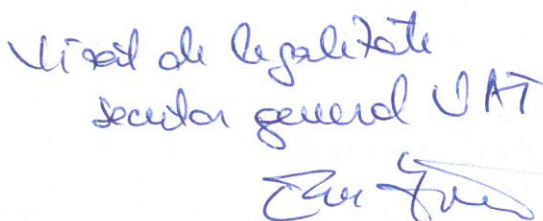 Vizat de legalitate
secretar general UAT